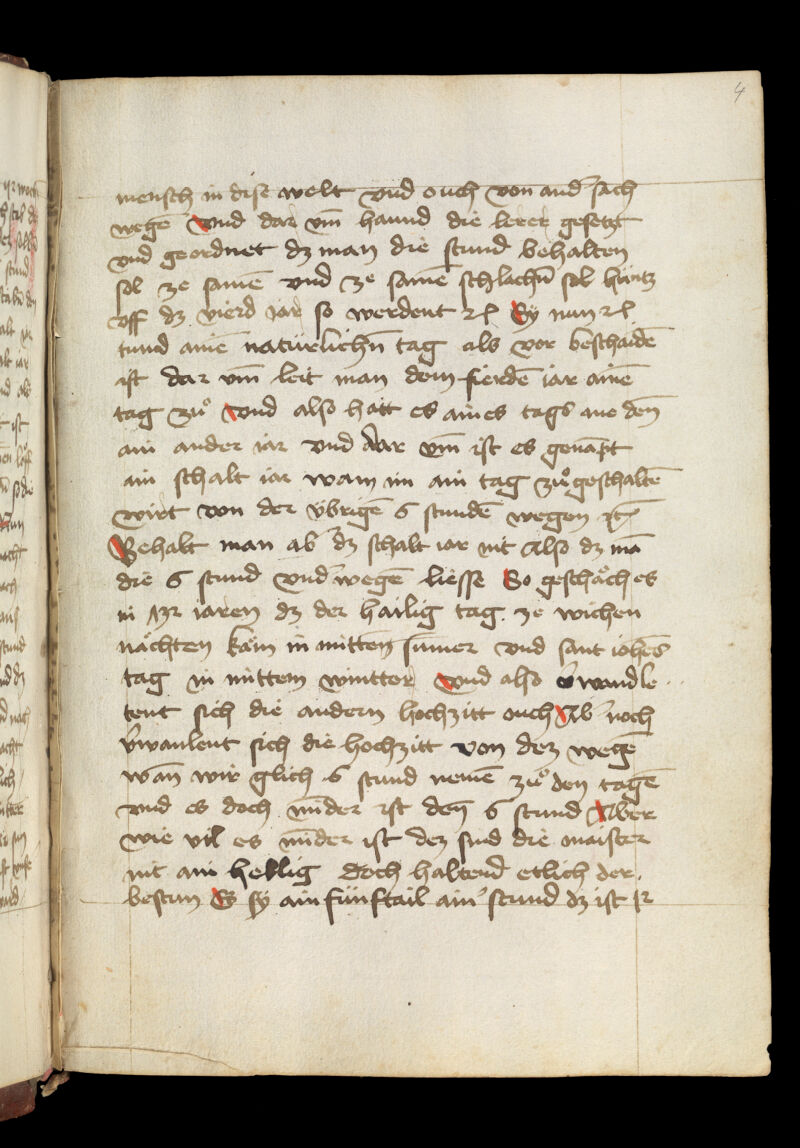 4
mensch in dise welt vnd ouch von and' sach
wegē Vnd dar vm̄ haund die lerer gesetzt
vnd geordnet dz man die stund behalten
sol ze samē vnd ze samē schlachn̄ sol huntz
vff dz vierd jar so werdent
tund ainē natúrlichn̄ tag als vor beschaidē
ist dar vm̄ leit man dem fierdē iar ainē
tag zuͦ Vnd also hatt es aines tags me den̄
ain ander iar vnd dar vm̄ ist es genāpt
ain schalt iar wam im ain tag zuͦgeschaltē
wirt von der v̈brigē 6 stundē wegen
Behalt man ab' dz schalt iar nit Also dz mā
die 6 stund vnd'wegē liesse So geschaͤch es
in iaren dz der hailig tag ze wichen
naͤchten kaͤm in mitten sumer vnd sant iohēs
tag in mittem wintter Vnd also v'wandle
tent sich die andern hochzitt ouch Ab' noch
v'wanlent sich die hochzitt von dez wegē
wan̄ wir glich 6 stund nemē zuͦ den tagē
vnd es doch mind̄er ist den̄ 6 stund Aber
wie vil es mīder ist dez sind die maister
nit ain hellig doch haltend etlich der
bestun Es sy ain fúnftail ain' stund dz ist 12